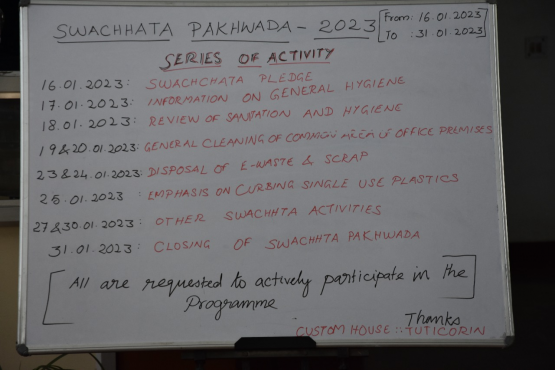 SWACHHATA PAKHWADA - 2023 [From: 16.01.2023
To : 31.01.2023]
SERIES OF ACTIVITY
16.01.2023: SWACHCHATA PLEDGE
17.01.2023: INFORMATION ON GENERAL HYGIENE
18.01.2023: REVIEW OF SANITATION AND HYGIENE
19&20.01.2023: GENERAL CLEANING OF COMMON AREA OF OFFICE PREMISES
23&24.01.2023: DISPOSAL OF E-WASTE & SCRAP
25.01.2023: EMPHASIS ON CURBING SINGLE USE PLASTICS
27&30.01.2023: OTHER SWACHHTA ACTIVITIES
31.01.2023: CLOSING OF SWACHHTA PAKHWADA
[All are requested to actively participate in the
Programme]
Thanks
CUSTOM HOUSE :: TUTICORIN